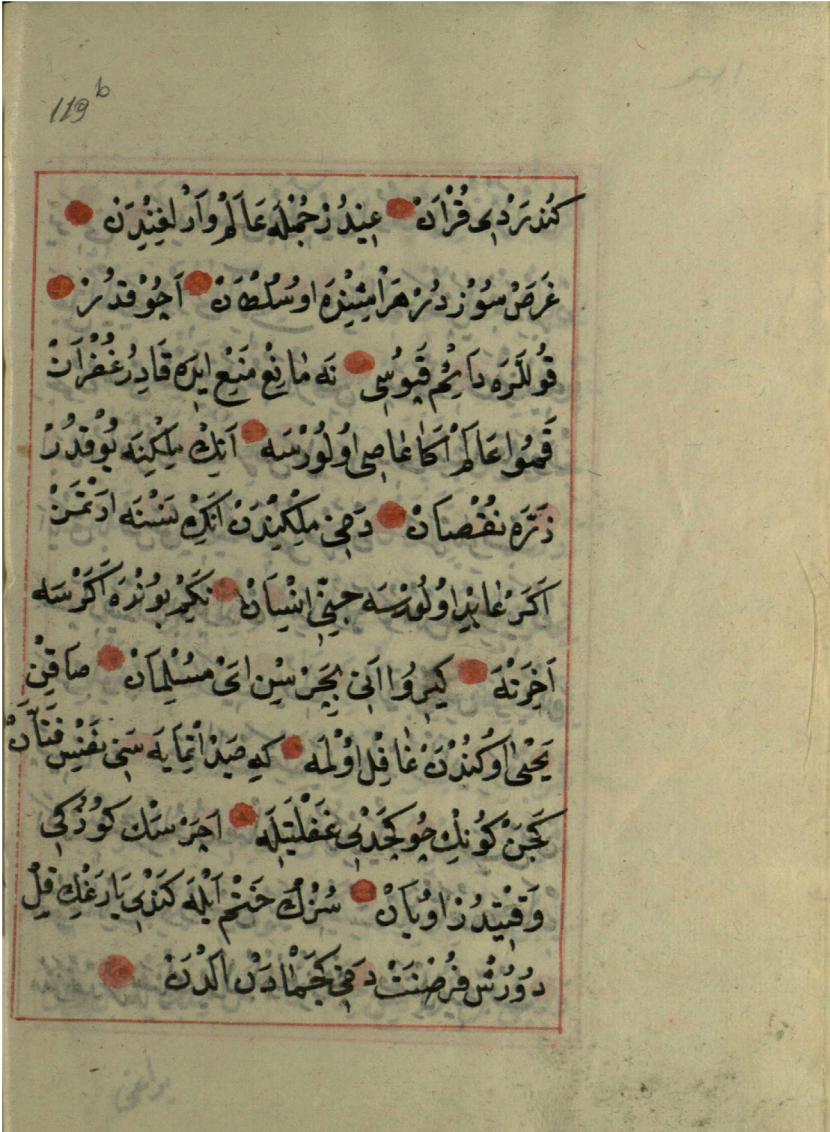 119b
كُندَرْدِى قُرْاٰنْ عِيندُرْ جُمْلَه عَالَمْ وَارْلغِنْدَنْ
غَرَضْ سُوزْدُرْ هَرْ اِشِنْدَه اوسُلْطَانْ اَچُوقْدُرْ
قُوللَرَه دَائِمْ قَپُوسِى نَه مَانِعْ مَنِعْ ايدَه قَادِرْ غُفْرَانْ
قَمُوا عَالَمْ اَكَا عَاصِى اُولُورْسَه اَنِكْ مِلْكِينَه يُوقْدُرْ
ذَرَّه نُقْصَانْ دَخِى مِلْكِينْدَنْ اَنِكْ نَسْنَه ارْتْمَزْ
اَكَرْ عَابِدْ اولُورْسَه جِنِّ اِنْسَانْ نَكِمْ بُونْدَه اَكَرْسَه
اَخِرَتْدَه كِيرُوا اَنِى بِچَرْسِنْ اَىْ مُسُلْمَانْ صَاقِنْ
يَحْيىٰ اوكُندُنْ غَافِلْ اُولْمَه كِه صَيدْ اتْمَايَه سَنِى نَفْسِ فَتَّانْ
كَچَنْ كُونِكْ چُو كَچْدِى غَفْلَتِيلَه اچَرْسَكْ كُوزُكِى
وَقْتِيدُرْ اويَانْ سُزْكْ خَتْم اَيْلَه كَنْدِى يَارَغِكْ قِلْ
دُورُشْ فُرْصَتْ دَخِى كَچْمَادَنْ الْدَنْ
يراغى